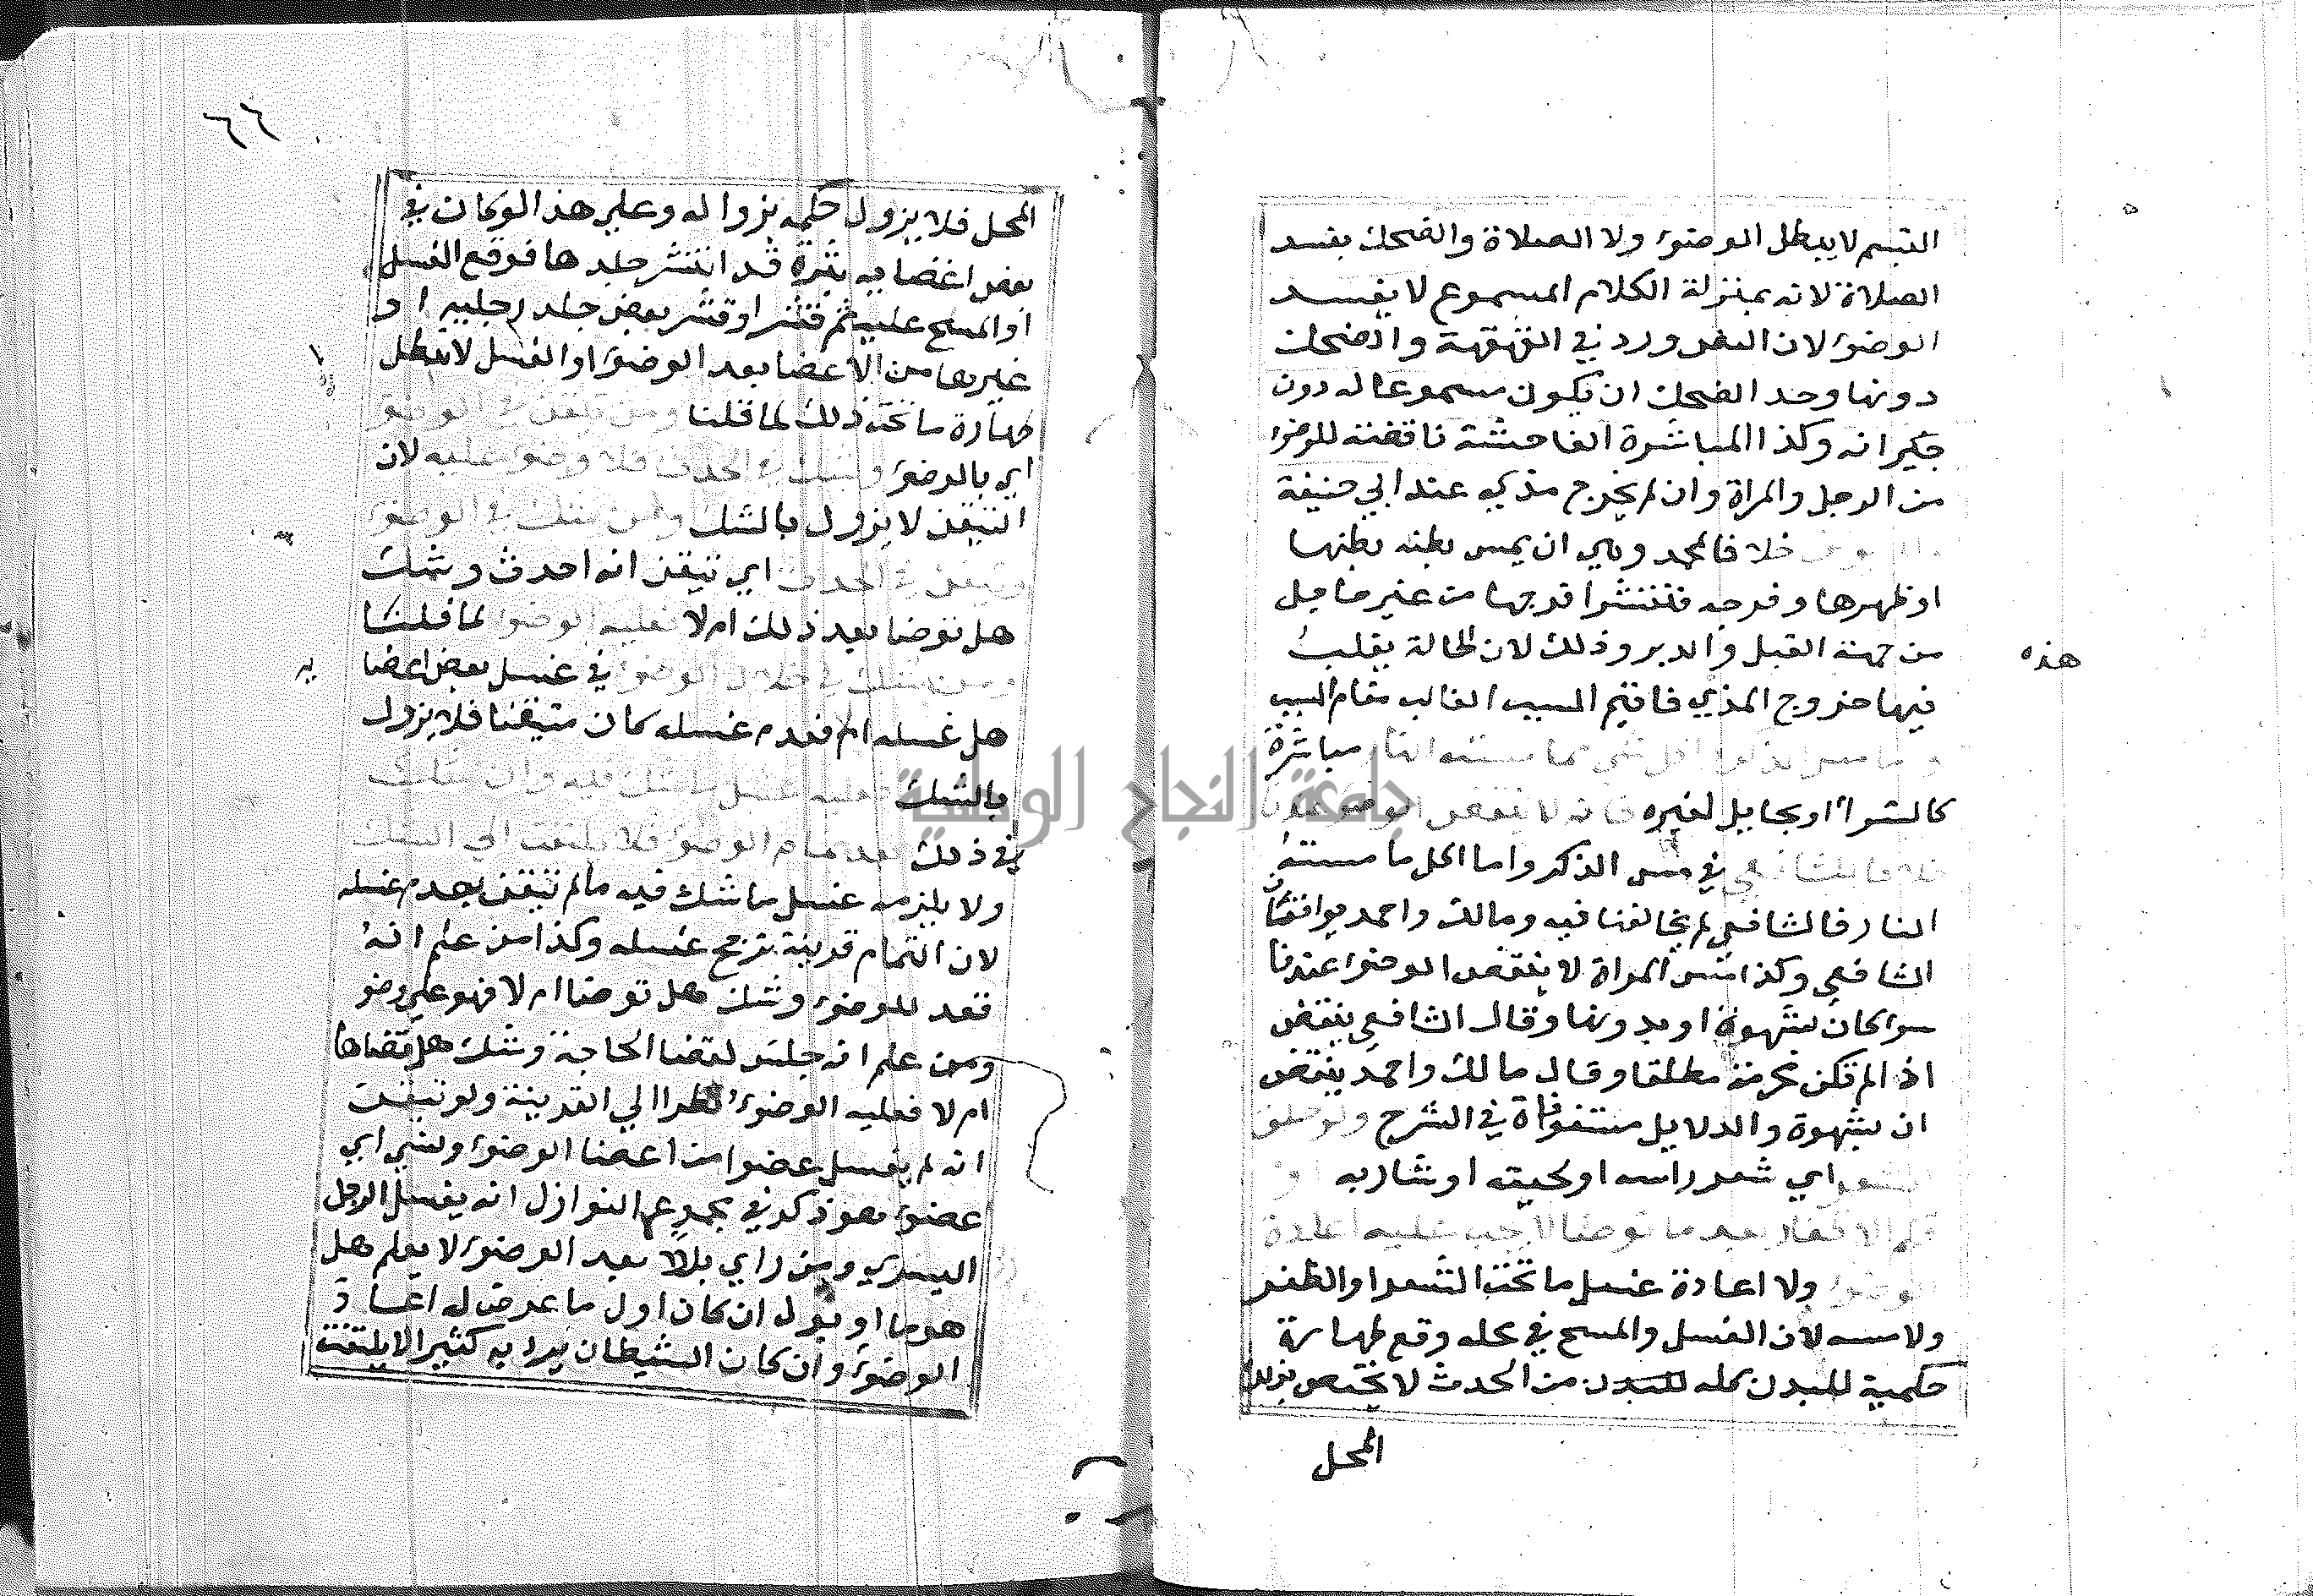 التبسم لا يبطل الوضوء ولا الصلاة والضحك يفسد
الصلاة لانه بمنزلة الكلام المسموع لا يفسد
الوضوء لان النص ورد في القهقهة والضحك
دونها وحد الضحك ان يكون مسموعا له دون
جيرانه وكذا المباشرة الفاحشة ناقضة للوضوء
من الرجل والمراة وان لم يخرج مذي عند ابي حنيفة
خلافا لمحمد وهي ان يمس بطنه بطنها
او ظهرها وفرجه منتشرا فرجها من غير حايل
من جهة القبل والدبر وذلك لان الحالة يغلب
هذه
فيها خروج المذي فاقيم السبب الغالب مقام المسبب
مباشرة
كالشواء او بحايل لغيره فانه لا ينقض الوضوء عندنا
خلافا للشافعي في مس الذكر واما اكل ما مسته
النار فالشافعي لم يخالفنا فيه ومالك واحمد يوافقان
الشافعي وكذا مس المراة لا ينقض الوضوء عندنا
سوا كان بشهوة او بدونها وقال الشافعي ينقض
اذا لم تكن محرمة مطلقا وقال مالك واحمد ينقض
ان بشهوة والدلايل مستوفاة في الشرح ولو حلق
الشعر اي شعر راسه او لحيته او شاربه او
قلم الاظفار بعد ما توضا لا يجب عليه اعادة
الوضوء ولا اعادة غسل ما تحت الشعر او الظفر
ولا مسه لان الغسل والمسح في محله وقع طهارة
حكمية للبدن كله للبدن من الحدث لا يختص بذلك
المحل
٦٦
المحل فلا يزول حكمه بزواله وعلي هذا لو كان في
بعض اعضايه بثرة قد انتشر جلدها فوقع الغسل
او المسح عليه ثم قشر او قشر بعض جلد رجليه او
غيرها من الاعضا بعد الوضوء او الغسل لا تبطل
طهارة ما تحته ذلك لما قلنا ومن تيقن في الوضوء
اي بالوضوء وشك في الحدث فلا وضوء عليه لان
التيقن لا يزول بالشك ومن شك في الوضوء
وتيقن في الحدث اي تيقن انه احدث وشك
هل توضا بعد ذلك ام لا فعليه الوضوء لما قلنا
ومن شك في خلال الوضوء في غسل بعض اعضا
يه
هل غسله ام فعدم غسله كان متيقنا فلا يزول
بالشك فعليه غسل ما شك فيه وان شك
في ذلك بعد تمام الوضوء فلا يلتفت الي الشك
ولا يلزمه غسل ما شك فيه ما لم تيقن بعدم غسله
لان التمام قرينة ترجح غسله وكذا من علم انه
قعد للوضوء وشك هل توضا ام لا فهو علي وضو
ومن علم انه جلس لقضا الحاجة وشك هل قضاها
ام لا فعليه الوضوء نظرا الي القرينة ولو تيقن
انه لم يغسل عضوا من اعضا الوضوء ونسي اي
عضو هو ذكر في مجموع النوازل انه يغسل الرجل
اليسري ومن راي بللا بعد الوضوء لا يعلم هل
هو ما او بول ان كان اول ما عرض له اعاد
الوضوء وان كان الشيطان يرد به كثيرا لا يلتفت
جامعة النجاح الوطنية